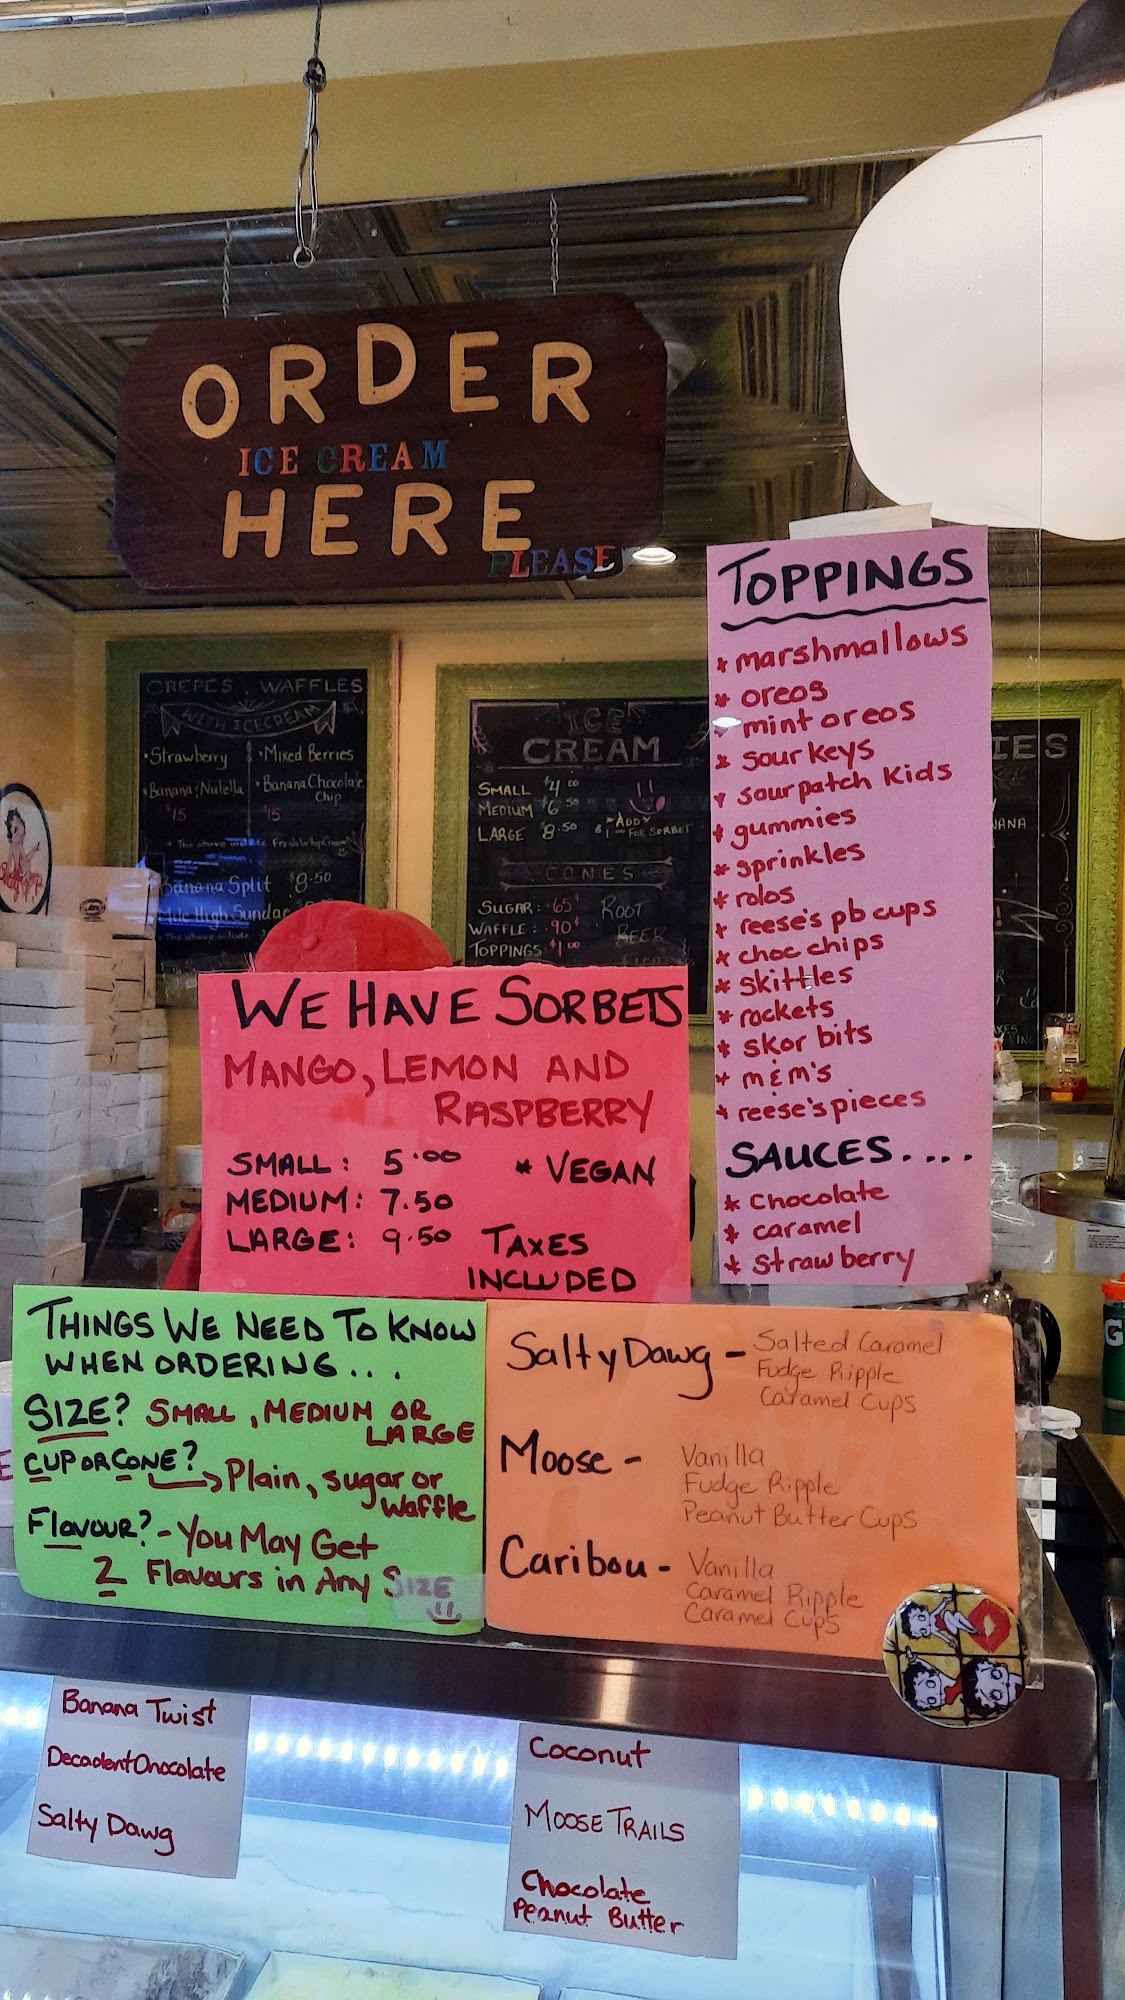 ORDER
ICE CREAM
HERE
PLEASE
TOPPINGS
* marshmallows
* oreos
* mint oreos
* sour keys
* sour patch kids
* gummies
* sprinkles
* rolos
* reese's pb cups
* choc chips
* skittles
* rockets
* skor bits
* m&m's
* reese's pieces
SAUCES....
* chocolate
* caramel
* strawberry
CREPES, WAFFLES
WITH ICECREAM
• Strawberry
• Mixed Berries
• Banana, Nutella
• Banana Chocolate
Chip
$15
$15
Banana Split $8.50
ICE
CREAM
SMALL $4.00
MEDIUM $6.50
LARGE $8.50
ADD
$1 FOR SORBET
CONES
SUGAR: .65¢
WAFFLE: .90¢
TOPPINGS: $1.00
ROOT
BEER
IES
WE HAVE SORBETS
MANGO, LEMON AND
RASPBERRY
SMALL: 5.00 * VEGAN
MEDIUM: 7.50
LARGE: 9.50 TAXES
INCLUDED
THINGS WE NEED TO KNOW
WHEN ORDERING...
SIZE? SMALL, MEDIUM OR
LARGE
CUP OR CONE? Plain, sugar or
waffle
Flavour? - You May Get
2 Flavours in Any SIZE
Salty Dawg - Salted Caramel
Fudge Ripple
Caramel Cups
Moose - Vanilla
Fudge Ripple
Peanut Butter Cups
Caribou - Vanilla
Caramel Ripple
Caramel Cups
Banana Twist
Decadent Chocolate
Salty Dawg
Coconut
MOOSE TRAILS
Chocolate
Peanut Butter
G